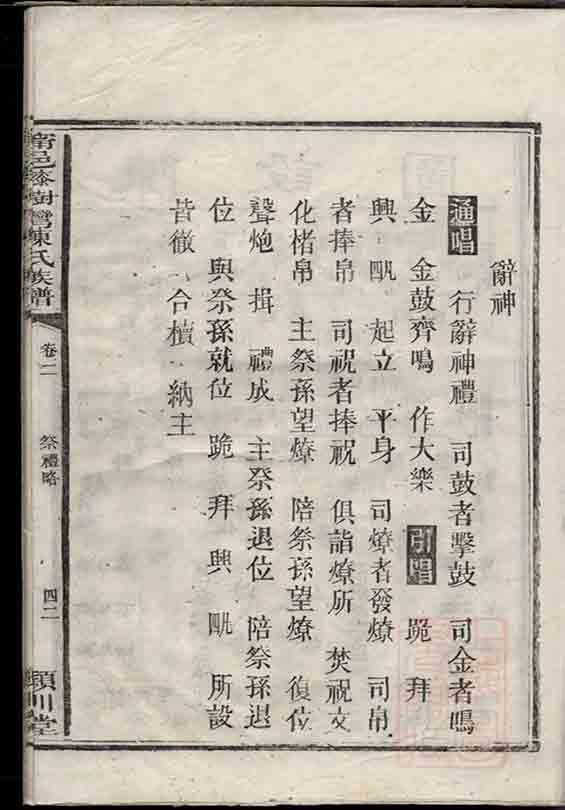 辭神
通唱 行辭神禮 司鼓者擊鼓 司金者鳴
金 金鼓齊鳴 作大樂 引唱 跪 拜
興 四 起立 平身 司燎者發燎 司帛
者捧帛 司祝者捧祝 俱詣燎所 焚祝文
化楮帛 主祭孫望燎 陪祭孫望燎 復位
聲炮 揖 禮成 主祭孫退位 陪祭孫退
位 與祭孫就位 跪 拜 興 四 所設
皆徹 合櫝 納主
甯邑漆樹灣陳氏族譜 卷二 祭禮略 四二 潁川堂